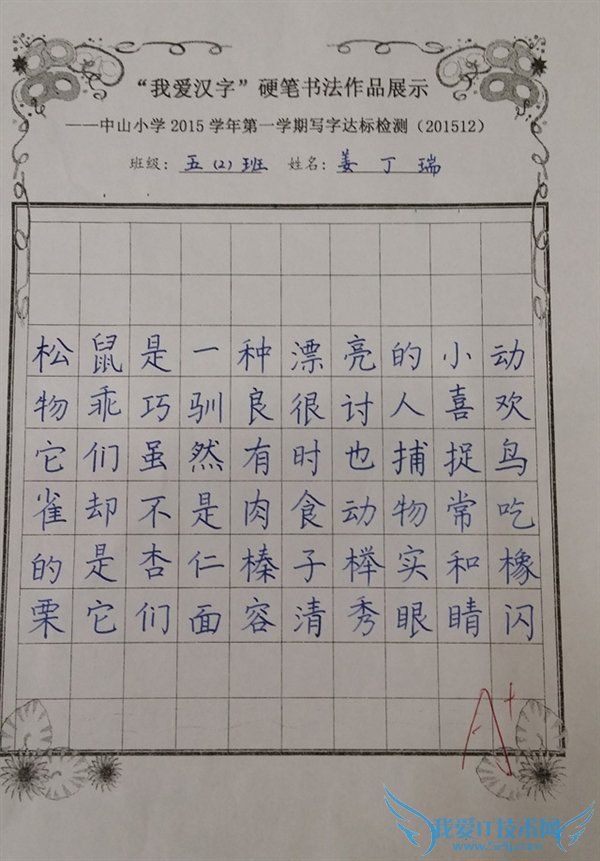 “我爱汉字”硬笔书法作品展示
——中山小学2015学年第一学期写字达标检测（201512）
班级：五(2)班 姓名：姜丁瑞
松鼠是一种漂亮的小动
物乖巧驯良很讨人喜欢
它们虽然有时也捕捉鸟
雀却不是肉食动物常吃
的是杏仁榛子榉实和橡
栗它们面容清秀眼睛闪
A+
我爱IT技术网
www.52ij.com